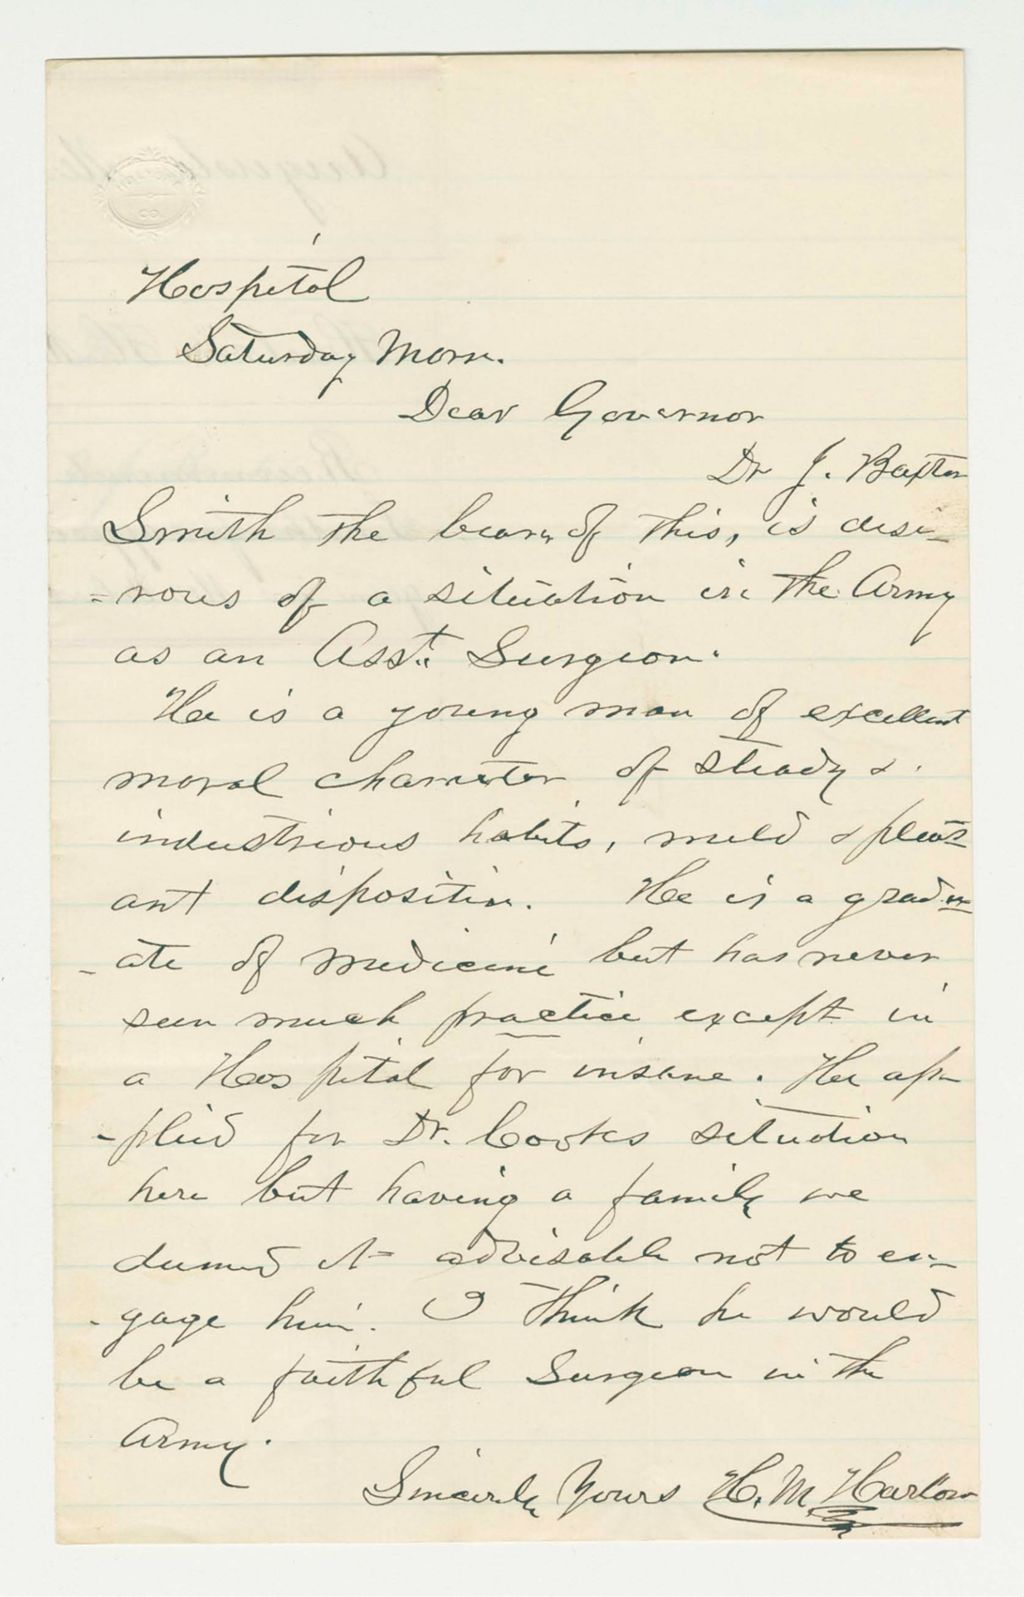 CO
Hospital
Saturday Morn.
Dear Governor
Dr J. Baxter
Smith the bearer of this, is desi-
=rous of a situation in the Army
as an Asst. Surgeon.
He is a young man of excellent
moral character of steady &
industrious habits, mild & pleas=
ant disposition. He is a gradu=
-ate of medicine but has never
seen much practice except in
a Hospital for insane. He ap-
-plied for Dr. Cooks situation
here but having a family we
deemed it advisable not to en-
-gage him. I think he would
be a faithful Surgeon in the
Army.
Sincerely Yours H. M. Harlow